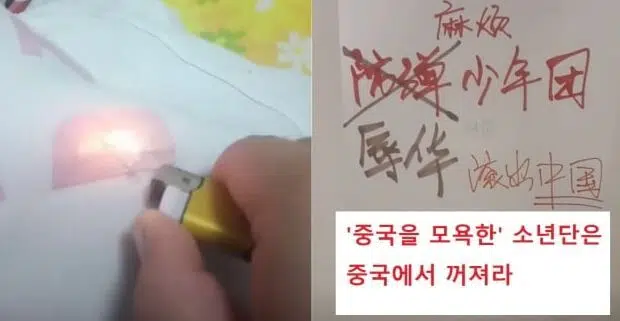 麻烦
防弹少年团
辱华
滚出中国
'중국을 모욕한' 소년단은
중국에서 꺼져라